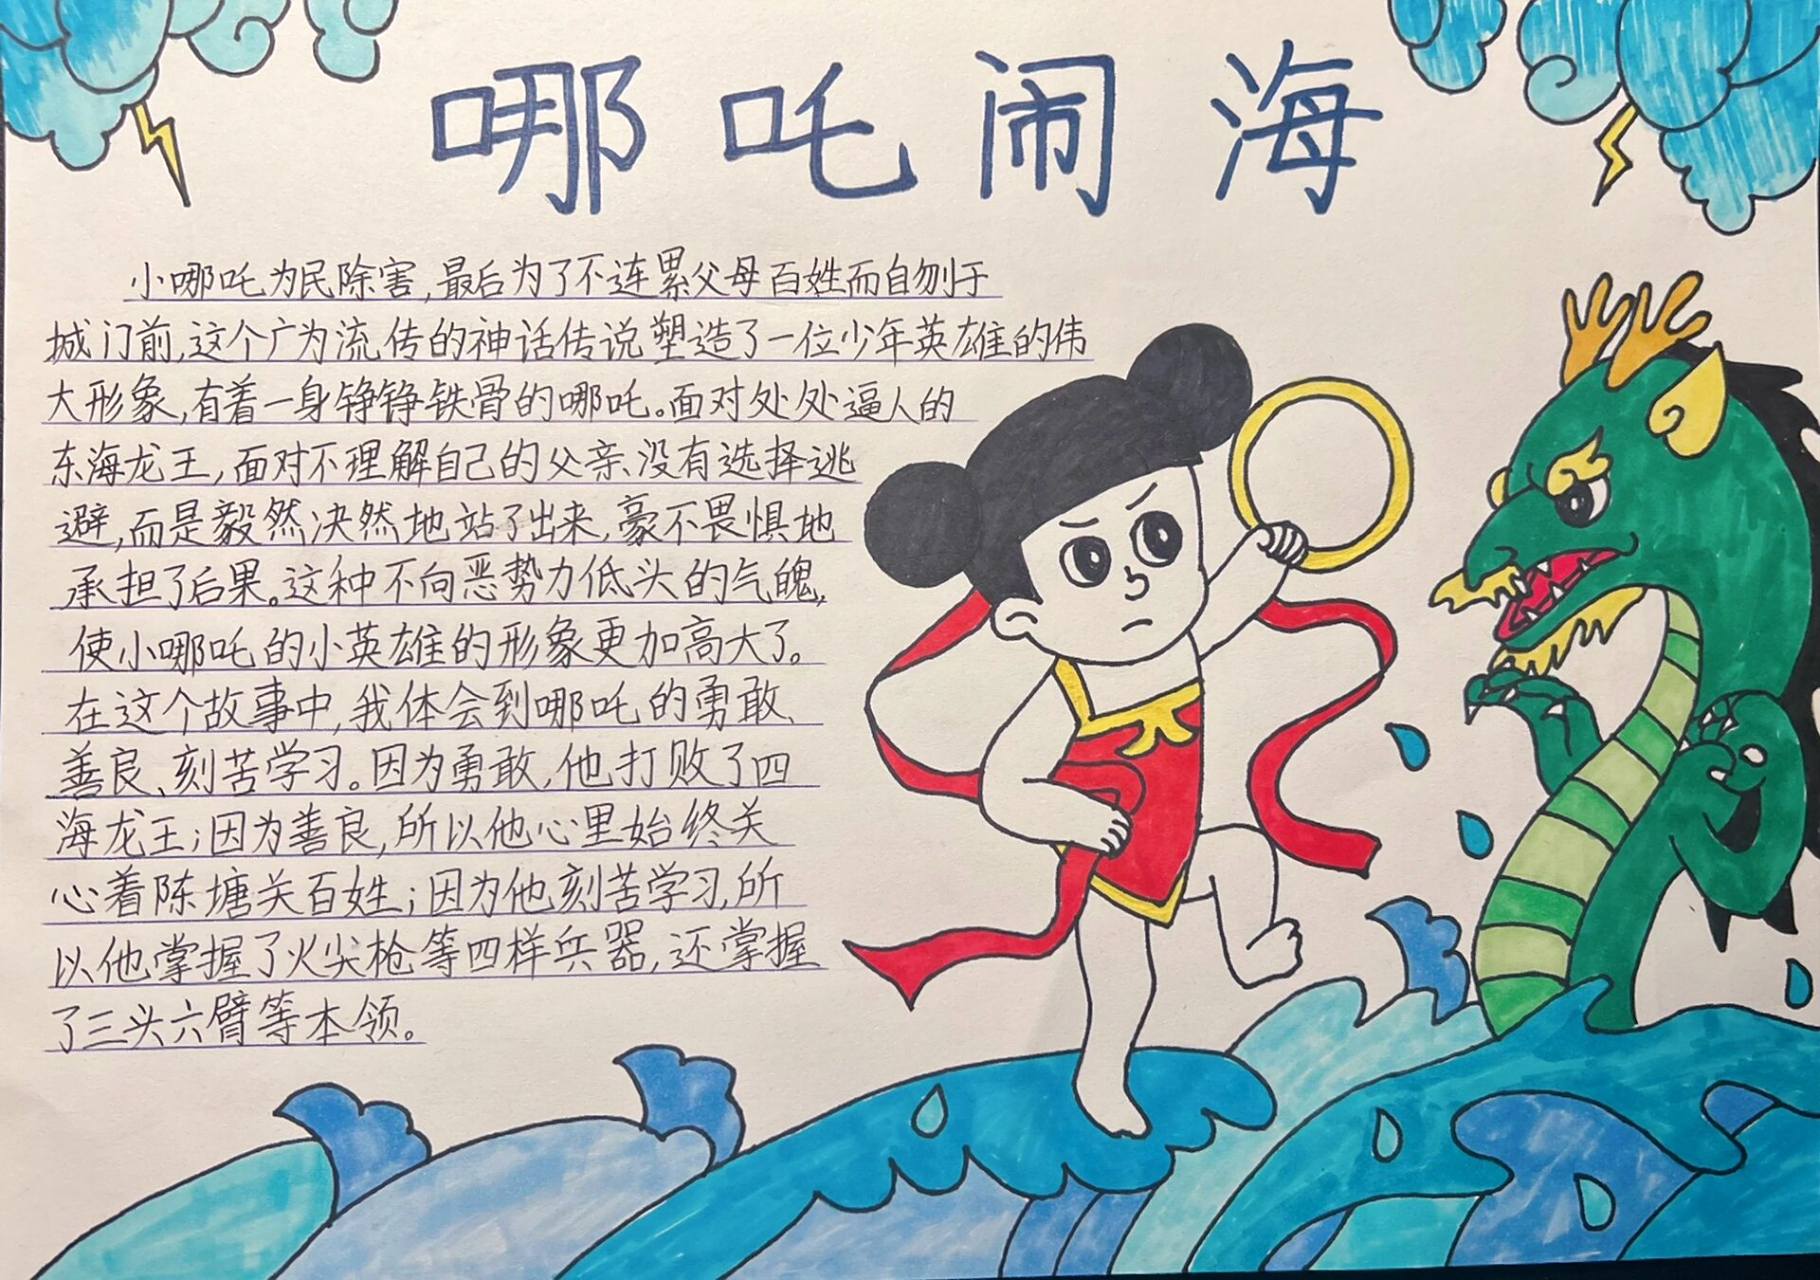 哪吒闹海
小哪吒为民除害,最后为了不连累父母百姓而自刎于
城门前,这个广为流传的神话传说塑造了一位少年英雄的伟
大形象,有着一身铮铮铁骨的哪吒。面对处处逼人的
东海龙王,面对不理解自己的父亲、没有选择逃
避,而是毅然决然地站了出来,豪不畏惧地
承担了后果。这种不向恶势力低头的气魄,
使小哪吒的小英雄的形象更加高大了。
在这个故事中,我体会到哪吒的勇敢、
善良、刻苦学习。因为勇敢,他打败了四
海龙王;因为善良,所以他心里始终关
心着陈塘关百姓;因为他刻苦学习,所
以他掌握了火尖枪等四样兵器,还掌握
了三头六臂等本领。